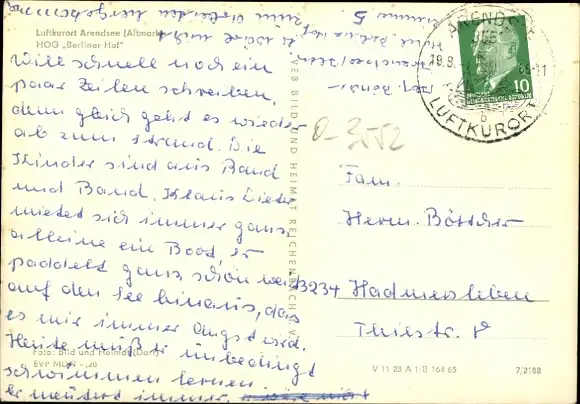 Luftkurort Arendsee (Altmark)
HOG „Berliner Hof"
Will schnell noch ein
paar Zeilen schreiben,
denn gleich geht es wieder
ab zum Strand. Die
Kinder sind aus Rand
und Band. Klaus Dieter
mietet sich immer ganz
alleine ein Boot, er
paddelt ganz schön weit
auf den See hinaus, daß
es mir immer Angst wird.
Heute muß er unbedingt
schwimmen lernen.
Er meutert immer,
es wäre nicht
zum
Zimmer 5
Foto: Bild und Heimat
EVP MDN -,20
VEB BILD UND HEIMAT REICHENBACH
ARENDSEE
19.8.
LUFTKURORT
b
DEUTSCHE DEMOKRATISCHE REPUBLIK
10
O-3552
Fam.
Herm. Böttcher
3234 Hadmersleben
Thiestr. 8
V 11 23 A 1/B 164/65
7/2188